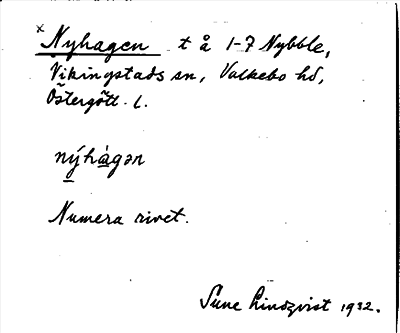 x Nyhagen t å 1-7 Nybble,
Vikingstads sn, Valkebo hd,
Östergötl. l.
nýhàgən
Numera rivet.
Sune Lindqvist 1932.